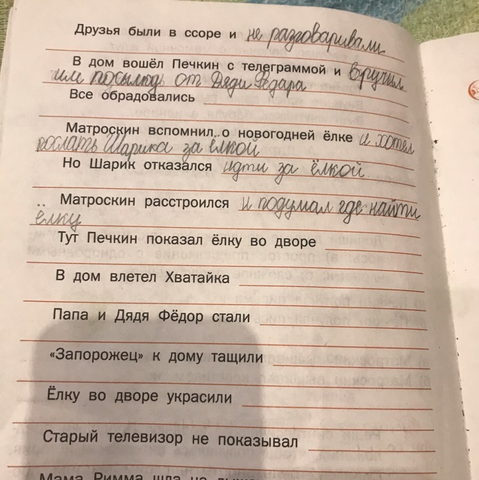 Друзья были в ссоре и не разговаривали
В дом вошёл Печкин с телеграммой и вручил
им посылку от Дяди Фёдара
Все обрадовались
Матроскин вспомнил о новогодней ёлке и хотел
послать Шарика за ёлкой
Но Шарик отказался идти за ёлкой
Матроскин расстроился и подумал где найти
ёлку
Тут Печкин показал ёлку во дворе
В дом влетел Хватайка
Папа и Дядя Фёдор стали
«Запорожец» к дому тащили
Ёлку во дворе украсили
Старый телевизор не показывал
Мама Римма шла на